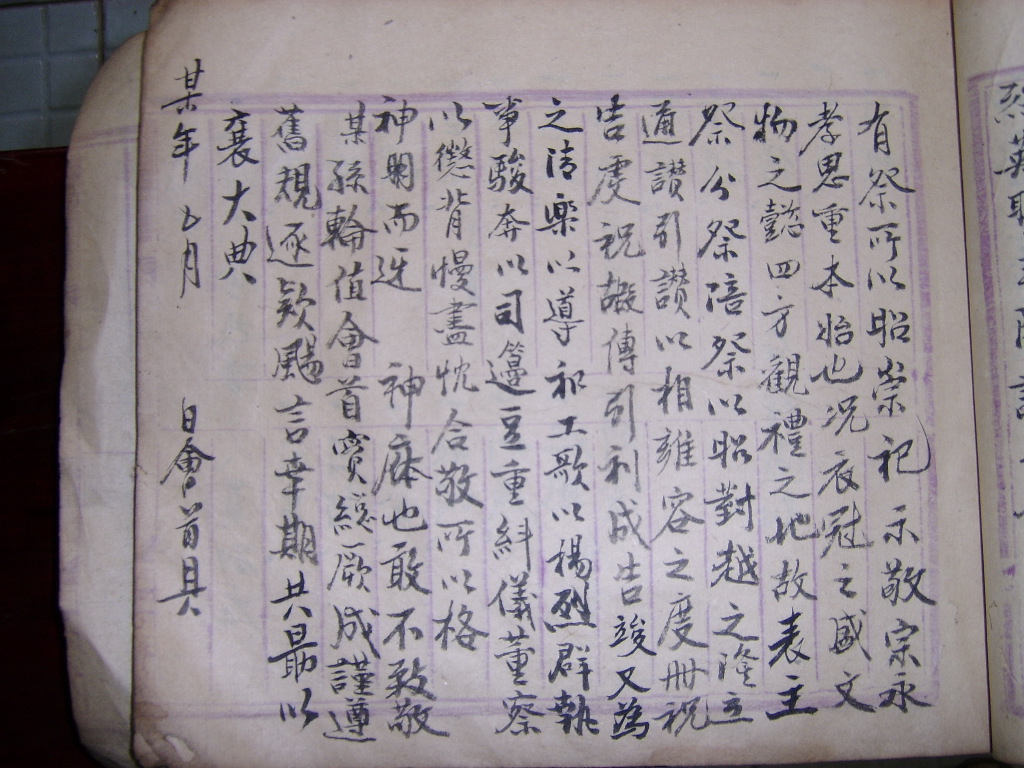 烈英
有祭所以昭崇祀示敬宗永
孝思重本始也况衣冠之盛文
物之懿四方觀禮之地故表主
祭分祭陪祭以昭對越之隆立
通讃引讃以相雍容之度冊祝
告虔祝嘏傳引利成告竣又為
之清樂以導和工歌以楊烈群執
事駿奔以司籩豆重糾儀董察
以懲背慢盡忱合敬所以格
神明而迓 神庥也敢不致敬
某孫輪值會首實綏厥成謹遵
舊規逐欵颺言幸期共勗以
襄大典
某年 月 日會首具